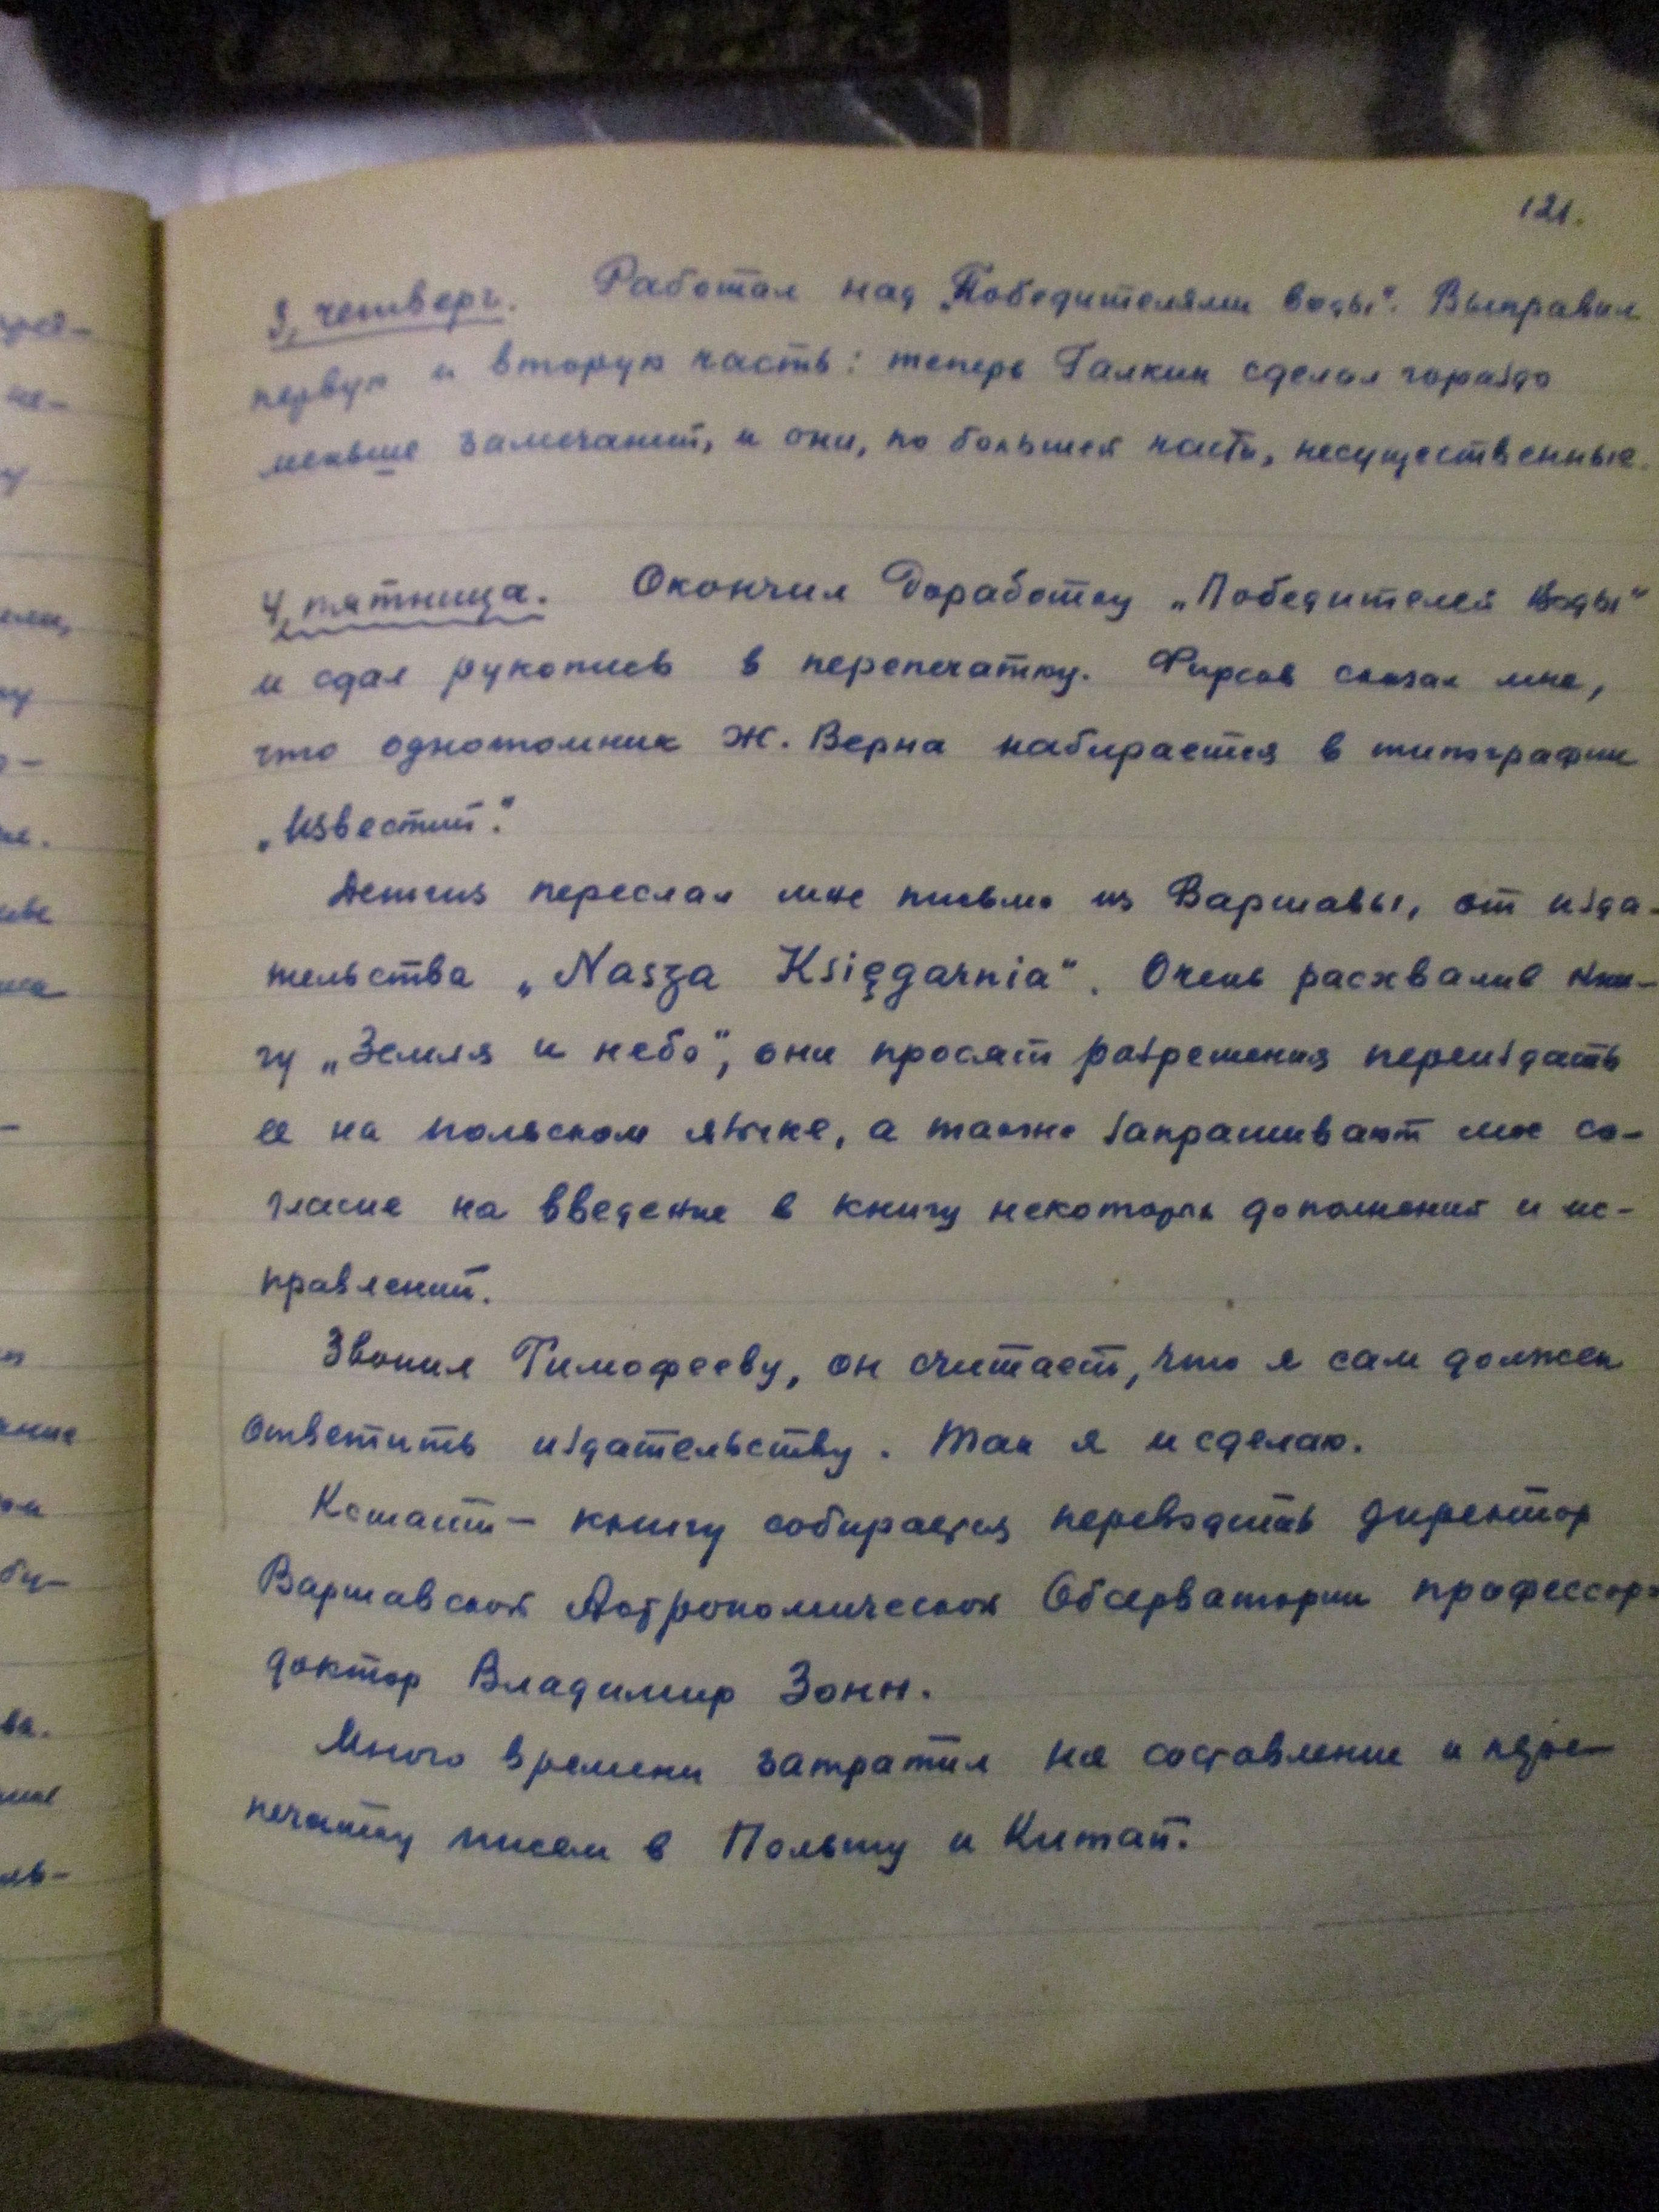 121.
3, четверг. Работал над „Победителями воды". Выправил
первую и вторую часть: теперь Галкин сделал гораздо
меньше замечаний, и они, по большей части, несущественные.
4, пятница. Окончил доработку „Победителей воды"
и сдал рукопись в перепечатку. Фирсов сказал мне,
что однотомник Ж. Верна набирается в типографии
„Известий".
Детгиз переслал мне письмо из Варшавы, от изда-
тельства „Nasza Księgarnia". Очень расхвалив кни-
гу „Земля и небо", они просят разрешения переиздать
ее на польском языке, а также запрашивают мое со-
гласие на введение в книгу некоторых дополнений и ис-
правлений.
Звонил Тимофееву, он считает, что я сам должен
ответить издательству. Так я и сделаю.
Кстати — книгу собирается переводить директор
Варшавской Астрономической Обсерватории профессор-
доктор Владимир Зонн.
Много времени затратил на составление и пере-
печатку писем в Польшу и Китай.